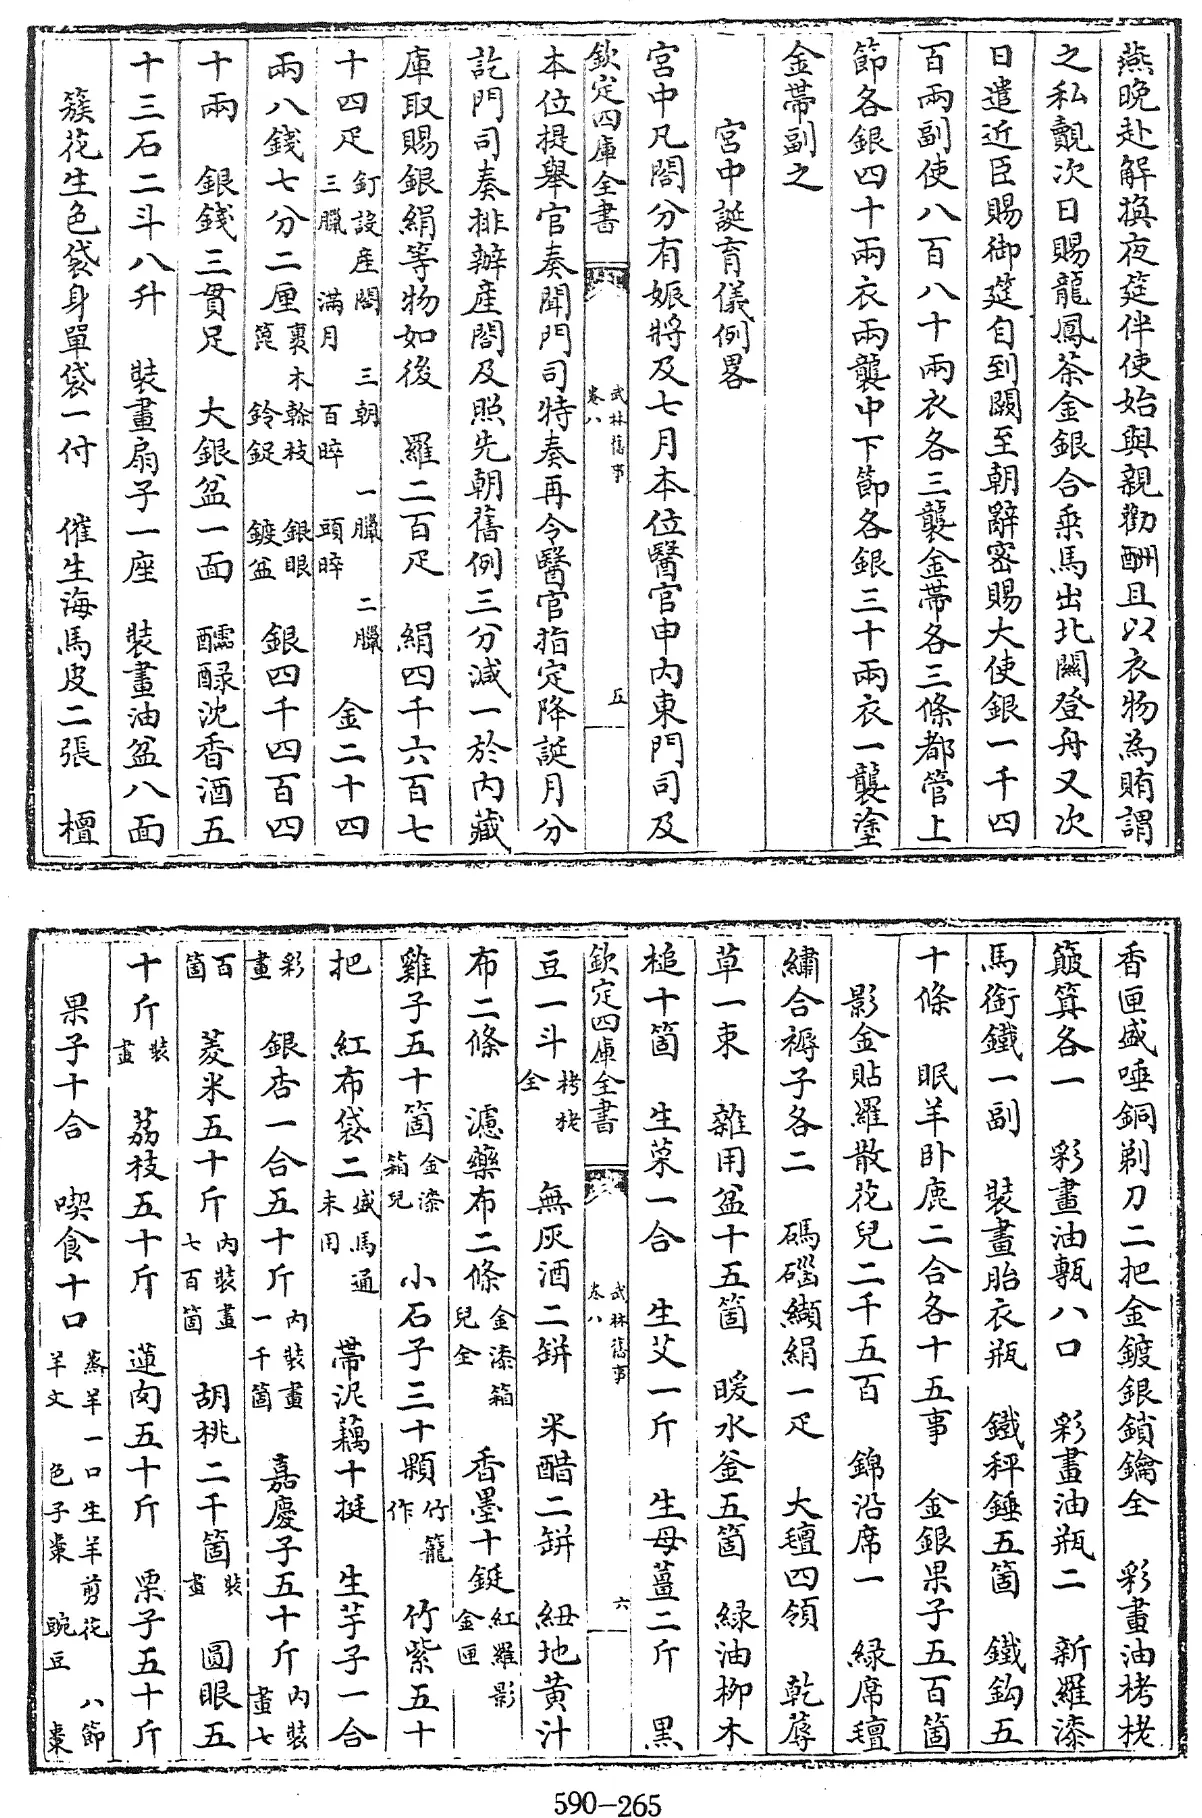 燕晚赴解換夜筵伴使始與親勸酬且以衣物為賄謂
之私覿次日賜龍鳳茶金銀合乘馬出北闗登舟又次
日遣近臣賜御筵自到闕至朝辭密賜大使銀一千四
百兩副使八百八十兩衣各三襲金帶各三條都管上
節各銀四十兩衣兩襲中下節各銀三十兩衣一襲塗
金帶副之
宮中誕育儀例畧
宮中凡閤分有娠將及七月本位醫官申内東門司及
欽定四庫全書
武林舊事
卷八
五
本位提舉官奏聞門司特奏再令醫官指定降誕月分
訖門司奏排辦產閤及照先朝舊例三分減一於内藏
庫取賜銀絹等物如後　羅二百疋　絹四千六百七
十四疋釘設産閤　三朝　一臘　二臘三臘　滿月　百晬　頭晬　金二十四
兩八錢七分二厘裹木簳杖　銀眼箆　鈴鋜　鍍盆　銀四千四百四
十兩　銀錢三貫足　大銀盆一面　醽醁沈香酒五
十三石二斗八升　裝畫扇子一座　裝畫油盆八面
簇花生色袋身單袋一付　催生海馬皮二張　檀
香匣盛硾銅剃刀二把金鍍銀鎖鑰全　彩畫油栲栳
簸箕各一　彩畫油甎八口　彩畫油瓶二　新羅漆
馬銜鐵一副　裝畫胎衣瓶　鐵秤錘五箇　鐵鈎五
十條　眠羊卧鹿二合各十五事　金銀果子五百箇
影金貼羅散花兒二千五百　錦沿席一　緑席氊
繡合褥子各二　碼碯纈絹一疋　大氊四領　乾蓐
草一束　雜用盆十五箇　暖水釜五箇　緑油柳木
槌十箇　生菜一合　生艾一斤　生母薑二斤　黒
欽定四庫全書
武林舊事
卷八
六
豆一斗栲栳全　無灰酒二缾　米醋二缾　紐地黄汁
布二條　濾藥布二條金漆箱兒全　香墨十鋌紅羅影金匣
雞子五十箇金漆箱兒　小石子三十顆竹籠作　竹紫五十
把　紅布袋二盛馬通末用　帶泥藕十挺　生芋子一合
彩畫　銀杏一合五十斤内裝畫一千箇　嘉慶子五十斤内裝畫七
百箇　菱米五十斤内裝畫七百箇　胡桃二千箇裝畫　圓眼五
十斤裝畫　荔枝五十斤　蓮肉五十斤　栗子五十斤
果子十合　喫食十口蒸羊一口生羊剪花　八節羊文　色子棗　豌豆　棗